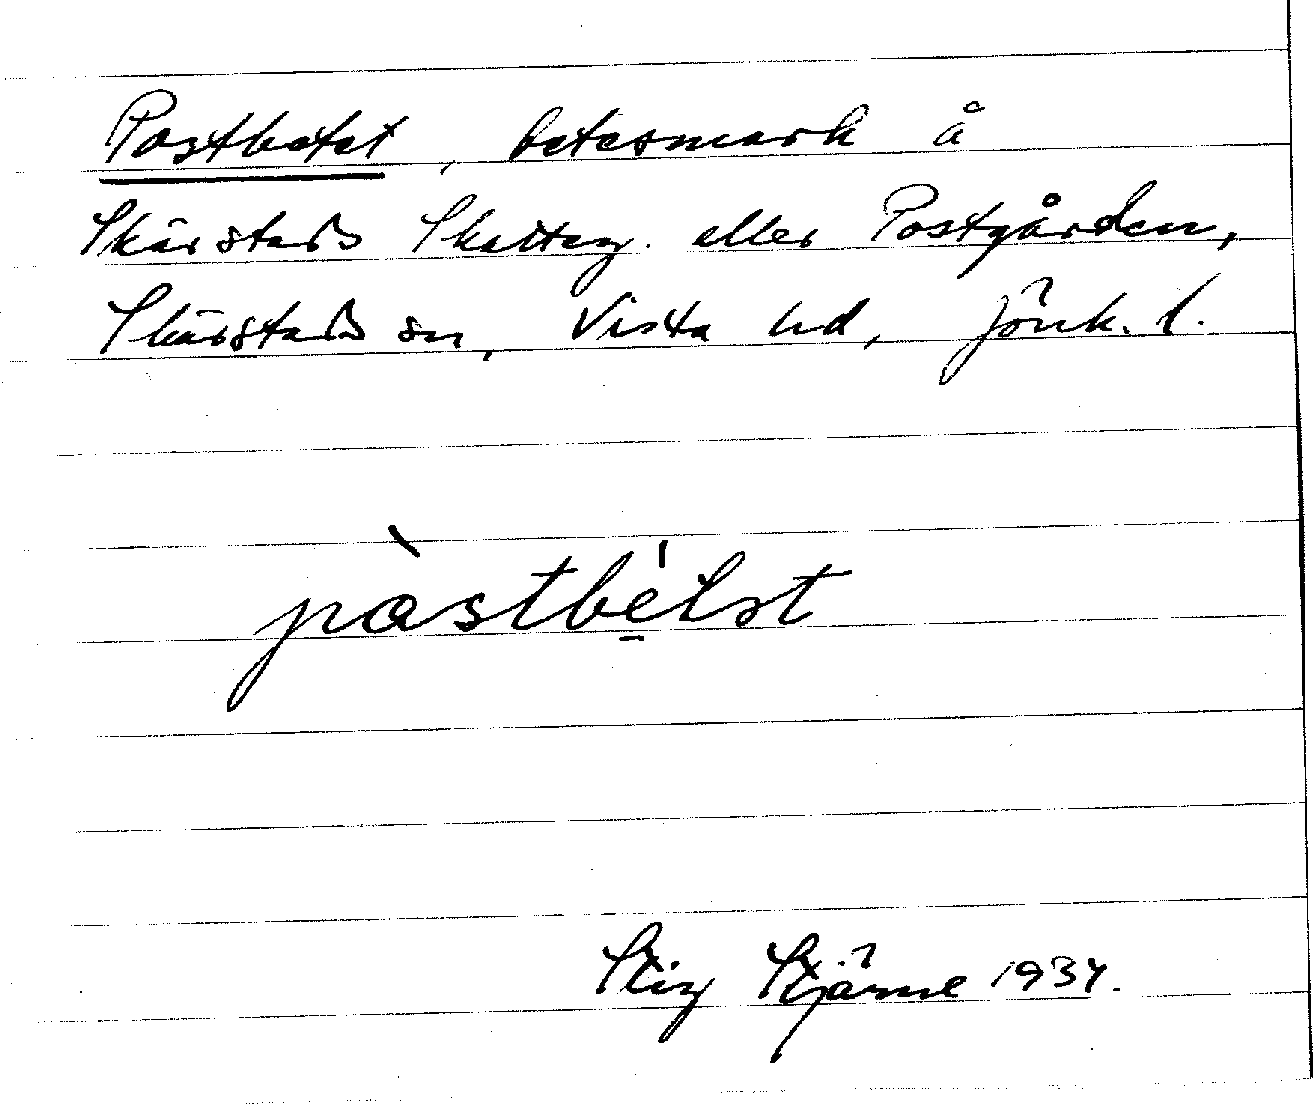 Postbetet, betesmark å
Skärstads Skatteg. eller Postgården,
Skärstads sn, Vista hd, Jönk. l.
pàstbe̠'tət
Stig Stjärne 1934.